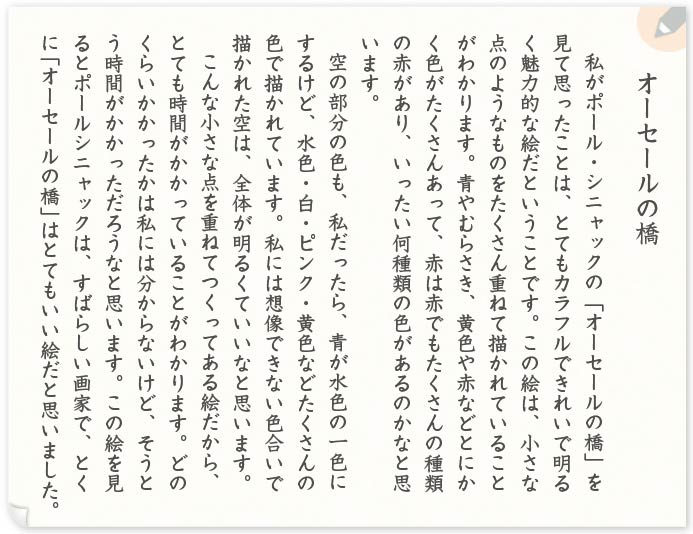 オーセールの橋
私がポール・シニャックの「オーセールの橋」を
見て思ったことは、とてもカラフルできれいで明る
く魅力的な絵だということです。この絵は、小さな
点のようなものをたくさん重ねて描かれていること
がわかります。青やむらさき、黄色や赤などとにか
く色がたくさんあって、赤は赤でもたくさんの種類
の赤があり、いったい何種類の色があるのかなと思
います。
空の部分の色も、私だったら、青が水色の一色に
するけど、水色・白・ピンク・黄色などたくさんの
色で描かれています。私には想像できない色合いで
描かれた空は、全体が明るくていいなと思います。
こんな小さな点を重ねてつくってある絵だから、
とても時間がかかっていることがわかります。どの
くらいかかったかは私には分からないけど、そうと
う時間がかかっただろうなと思います。この絵を見
るとポールシニャックは、すばらしい画家で、とく
に「オーセールの橋」はとてもいい絵だと思いました。